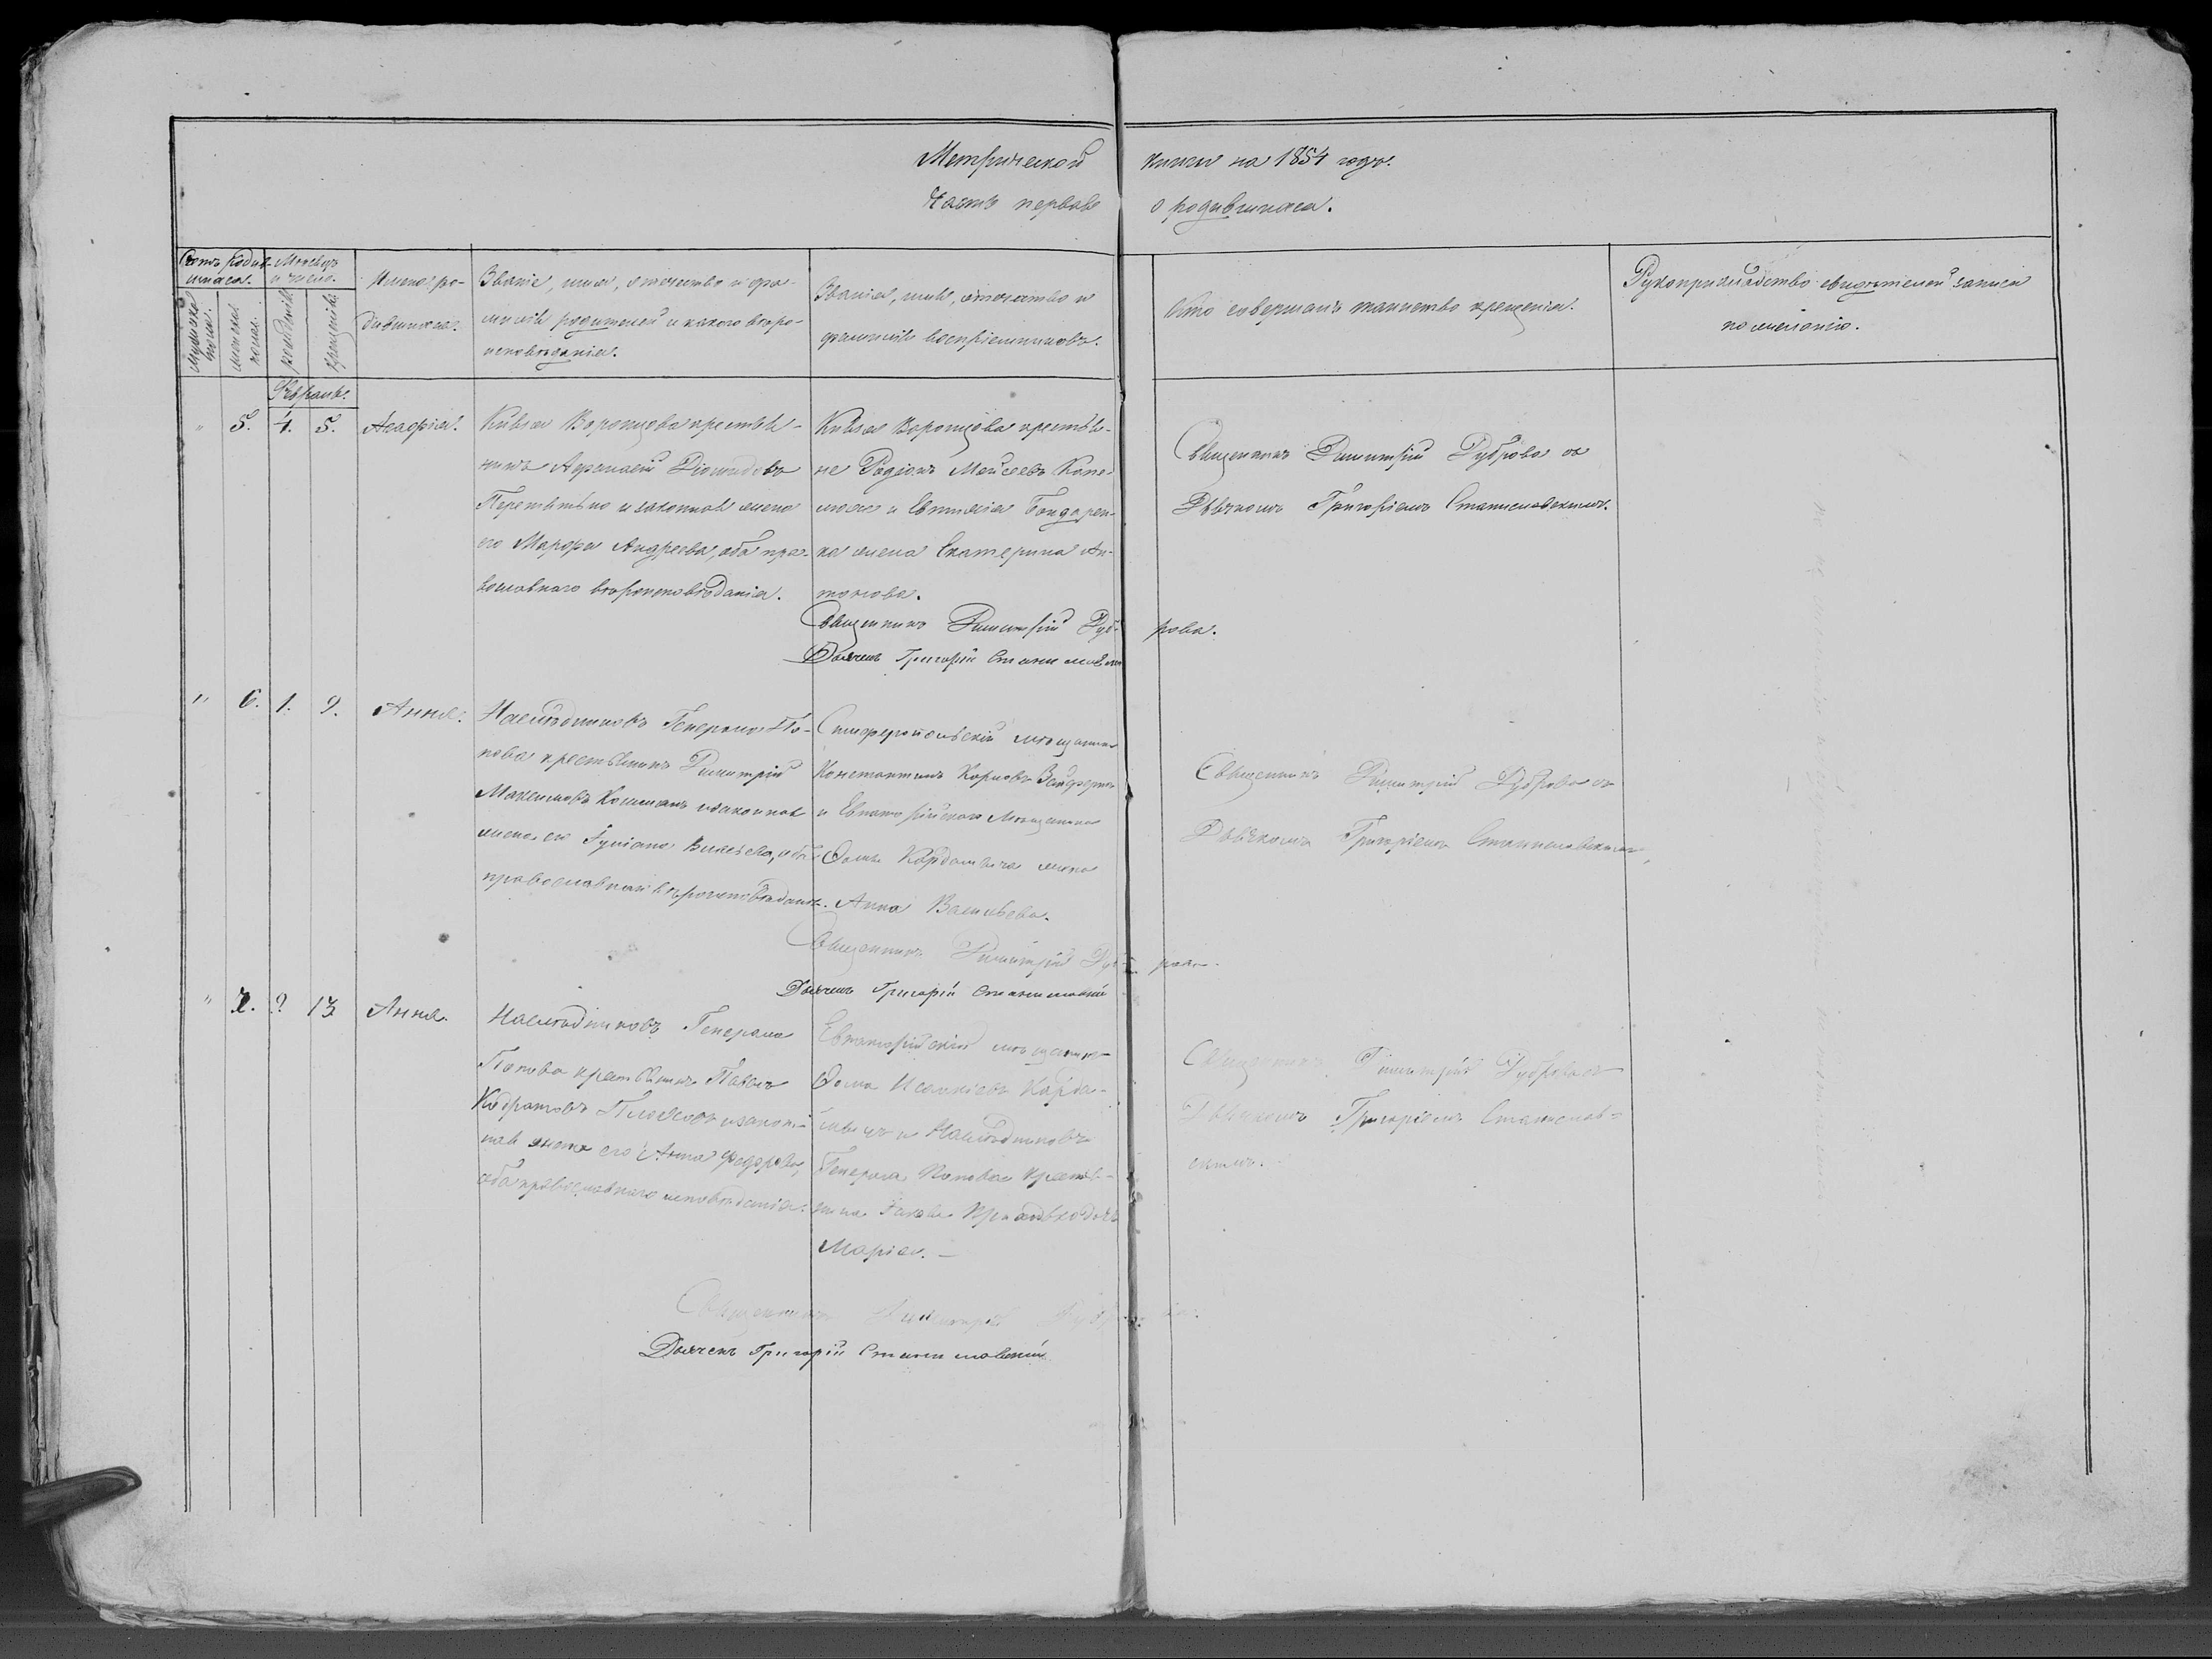 Метрической книги на 1854 годъ.
Часть первая о родившихся.
Счетъ родив-
шихся.
Мѣсяцъ
и число.
мужска
пола.
женска
пола.
рожденія
крещенія
Имена ро-
дившихся.
Званіе, имя, отечество и фа-
милія родителей и какого вѣро-
исповѣданія.
Званіе, имя, отечество и
фамилія воспріемниковъ.
Кто совершалъ таинство крещенія.
Рукоприкладство свидѣтелей записи
по желанію.
Февраль.
" 5. 4. 5. Агафія.
Князя Воронцова крестья-
нинъ Афанасій Діомидовъ
и законная жена
его Марфа Андреева, оба пра-
вославнаго вѣроисповѣданія.
Князя Воронцова крестья-
не Родіонъ Моисеевъ
и Евтихія Бондарен-
ка жена Екатерина Ан-
тонова.
Священникъ Димитрій Дуброва съ
Дьячкомъ Григоріемъ Станиславскимъ.
Священникъ Димитрій Дуброва.
Дьячекъ Григорій Станиславскій
" 6. 1. 9. Анна.
Наслѣдниковъ Генерала По-
пова крестьянинъ Димитрій
Максимовъ Кошманъ и законная
жена его Іуліана оба
православнаго вѣроисповѣданія.
Симферопольскій мѣщанинъ
Константинъ
и Евпаторійскаго Мѣщанина
Фомы жена
Анна Васильева.
Священникъ Димитрій Дуброва съ
Дьячкомъ Григоріемъ Станиславскимъ.
Священникъ Димитрій Дуброва.
Дьячекъ Григорій Станиславскій
" 7. 9 13 Анна.
Наслѣдниковъ Генерала
Попова крестьянинъ Павелъ
Кодратовъ и закон-
ная жена его Анна Федорова,
оба православнаго исповѣданія.
Евпаторійскій мѣщанинъ
Фома
и Наслѣдниковъ
Генерала Попова крестья-
нина Якова дочь
Марія.
Священникъ Димитрій Дуброва съ
Дьячкомъ Григоріемъ Станислав-
скимъ.
Священникъ Димитрій Дуброва.
Дьячекъ Григорій Станиславскій